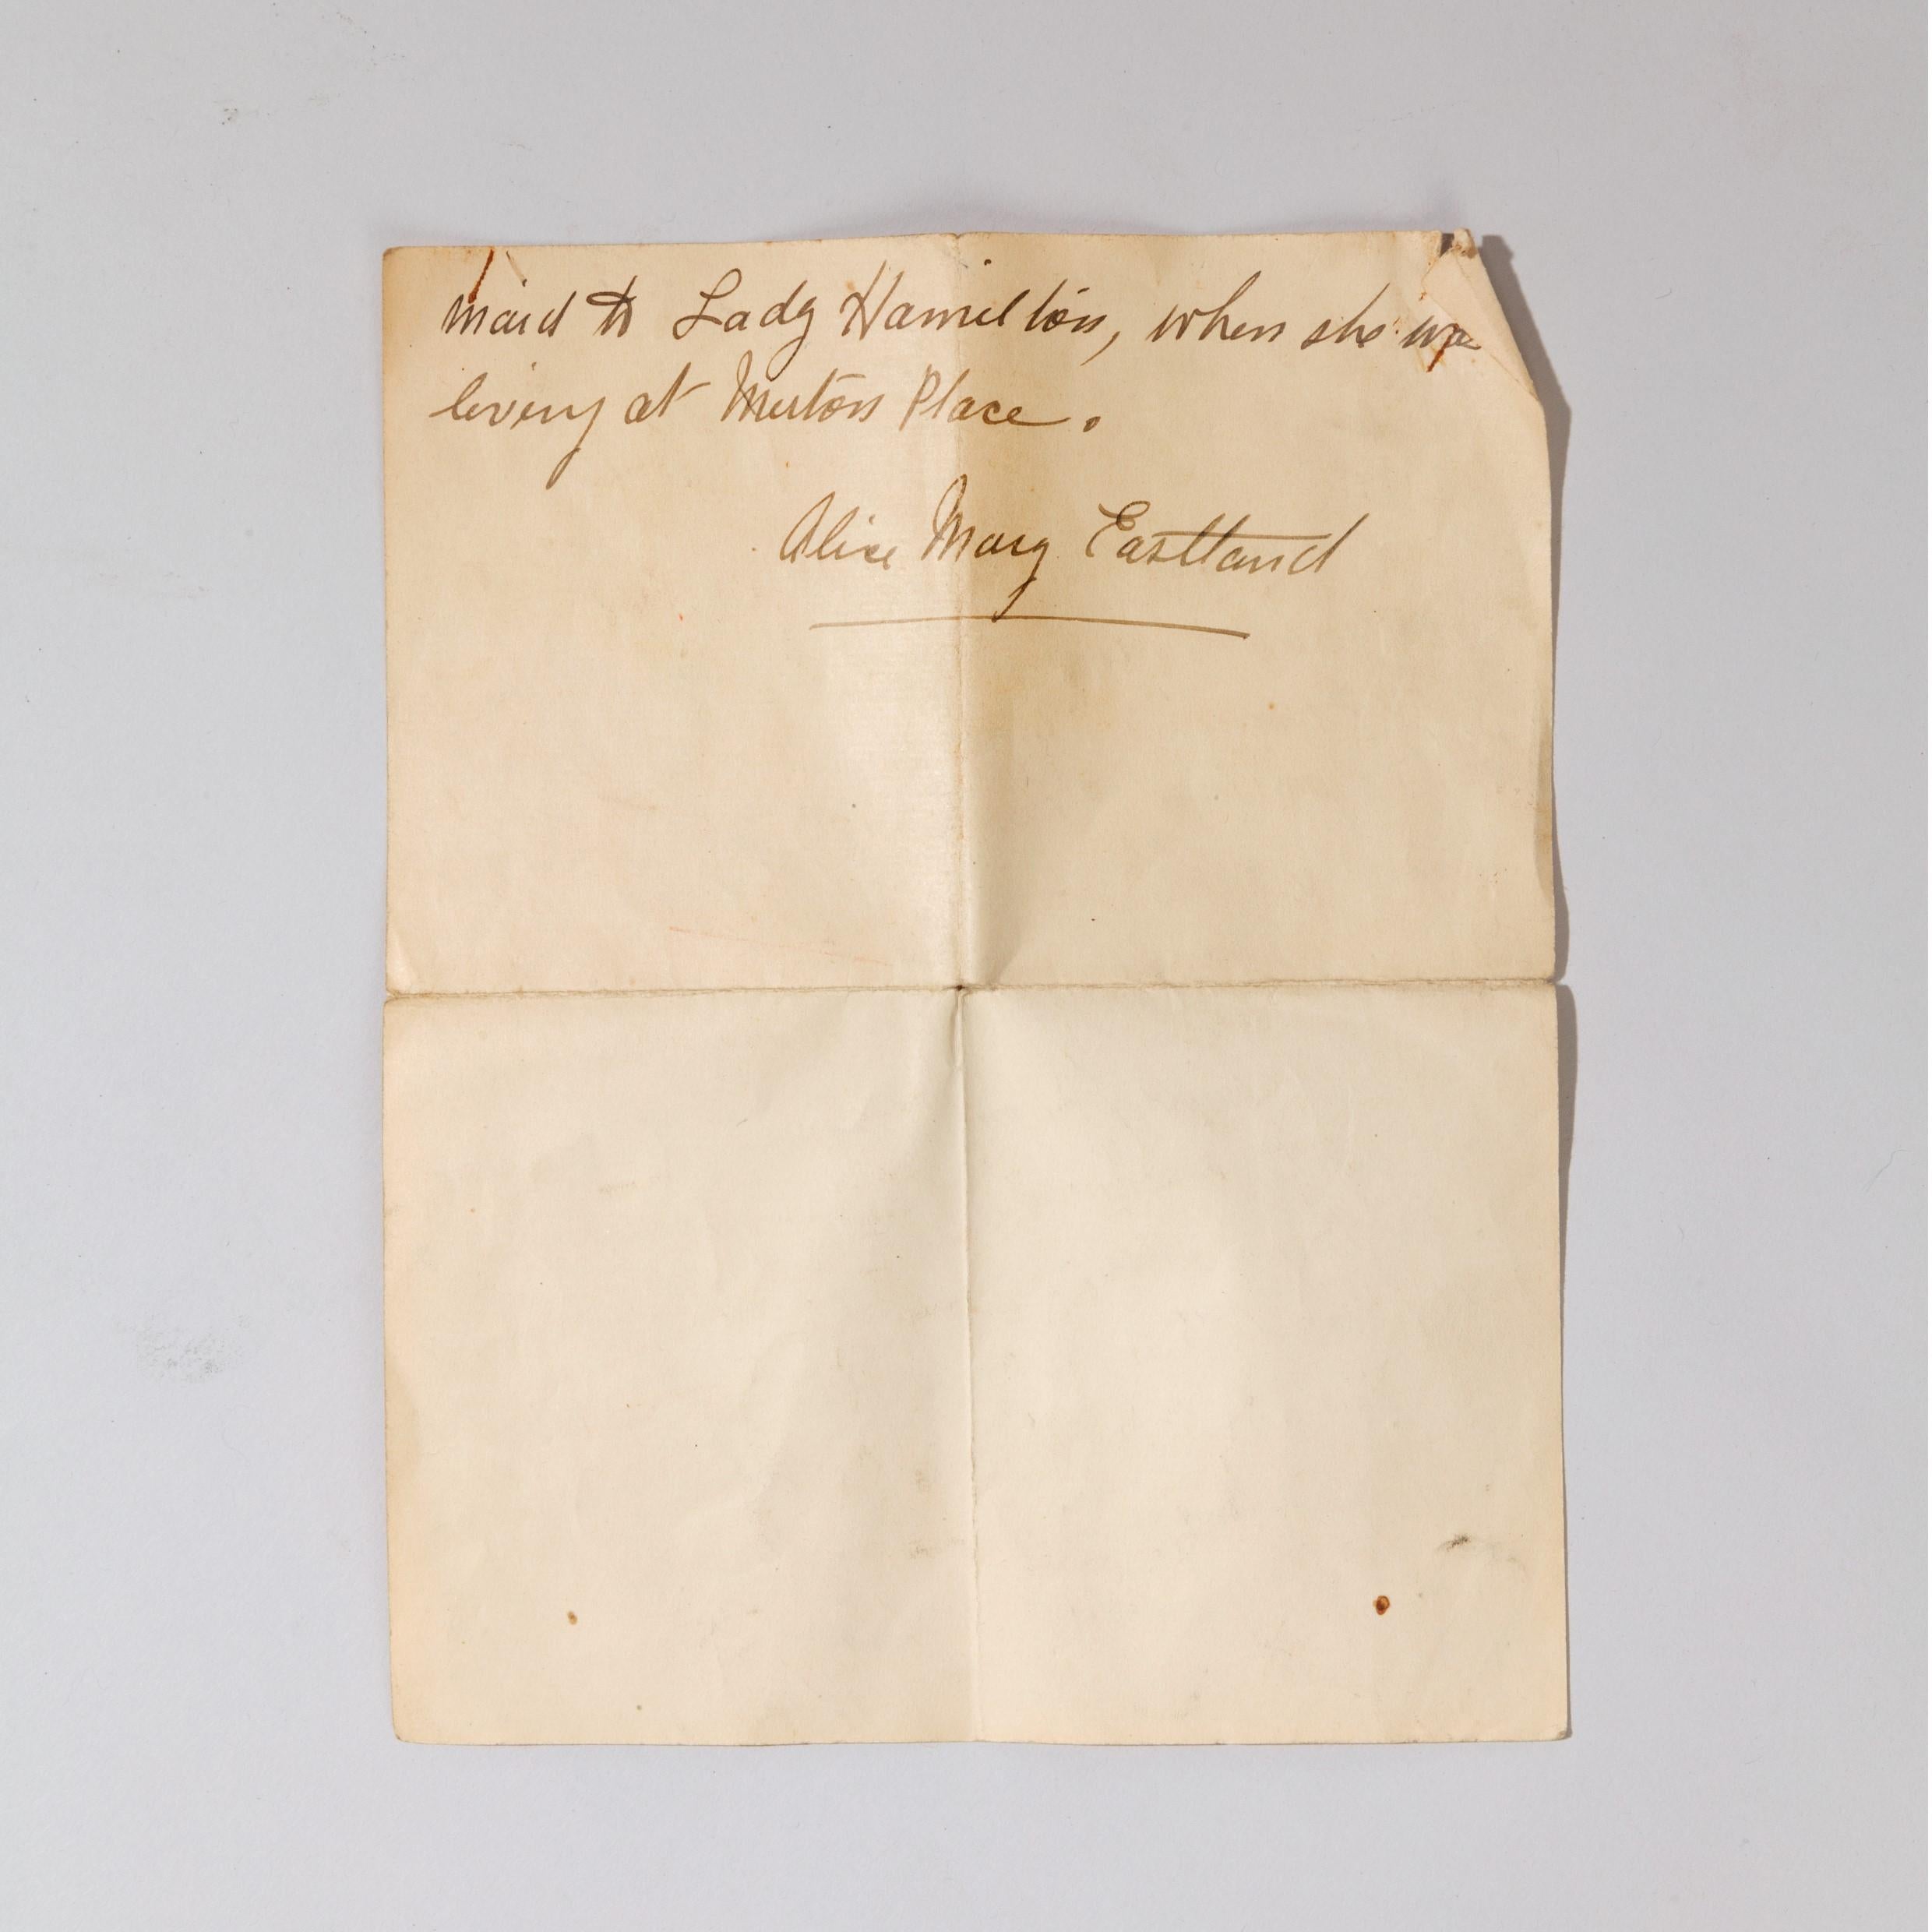 maid to Lady Hamilton, when she wa
living at Merton Place.
Alice Mary Eastland